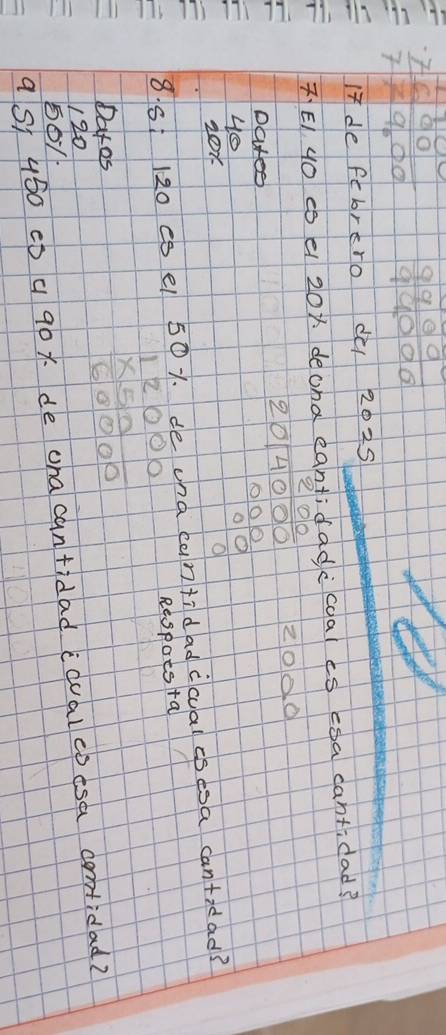 7600
77900
9900
99000
17 de febrero del 2025
7. El 40 es el 20% de una cantidad ¿cual es esa cantidad?
200
20 4000 2000
Datos 000
40 00
20% 0
8. Si 120 es el 50% de una cantidad ¿cual es esa cantidad?
12000 Respoesta
x50
Datos 60000
120
50%
9 Si 450 es el 90% de una cantidad ¿cual es esa cantidad?